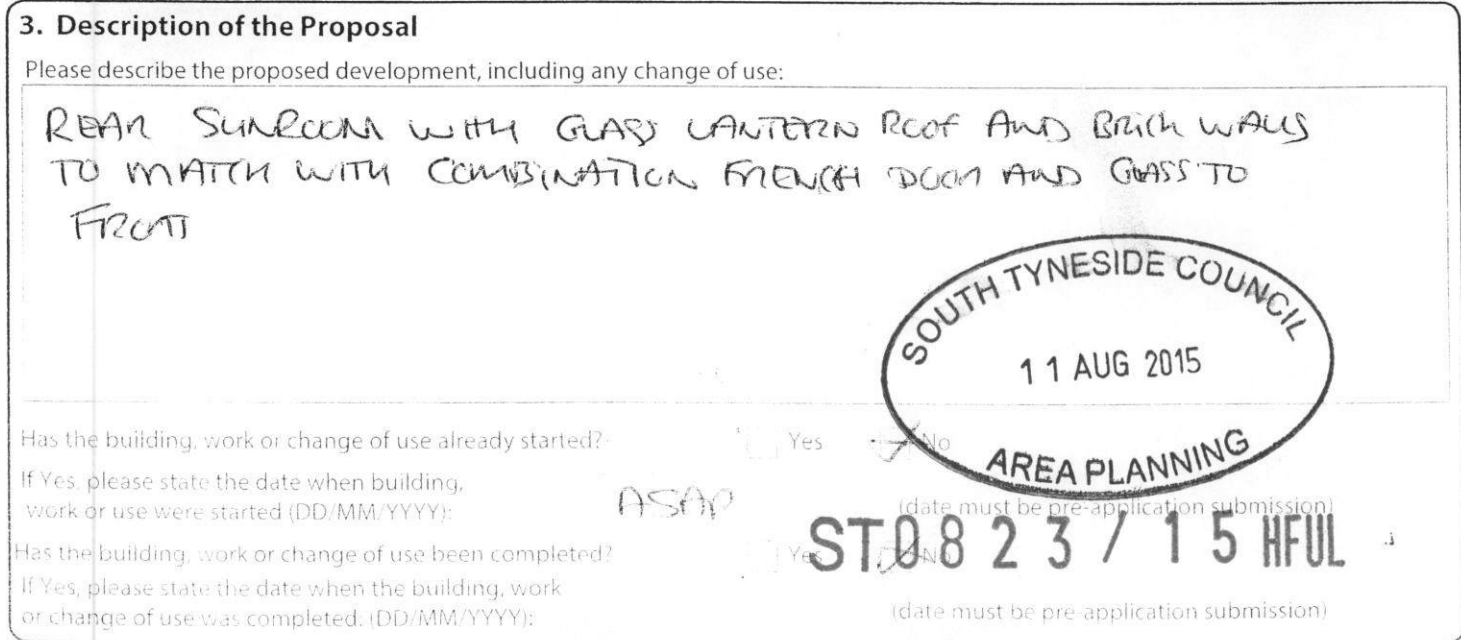 3. Description of the Proposal
Please describe the proposed development, including any change of use:
REAR SUNROOM WITH GLASS LANTERN ROOF AND BRICK WALLS
TO MATCH WITH COMBINATION FRENCH DOOR AND GLASS TO
FRONT
SOUTH TYNESIDE COUNCIL
11 AUG 2015
AREA PLANNING
Has the building, work or change of use already started? Yes No
If Yes, please state the date when building,
work or use were started (DD/MM/YYYY): ASAP (date must be pre-application submission)
ST0823/15 HFUL
Has the building, work or change of use been completed? Yes No
If Yes, please state the date when the building, work
or change of use was completed: (DD/MM/YYYY): (date must be pre-application submission)